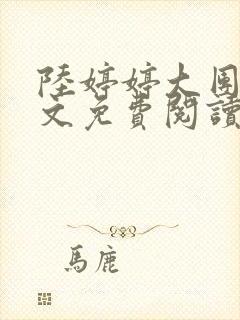 陸婷婷大團
文免費閱讀
馬鹿